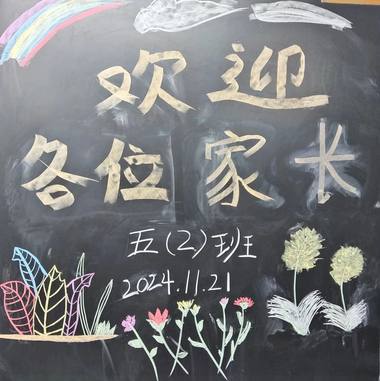 欢迎
各位家长
五(2)班
2024.11.21